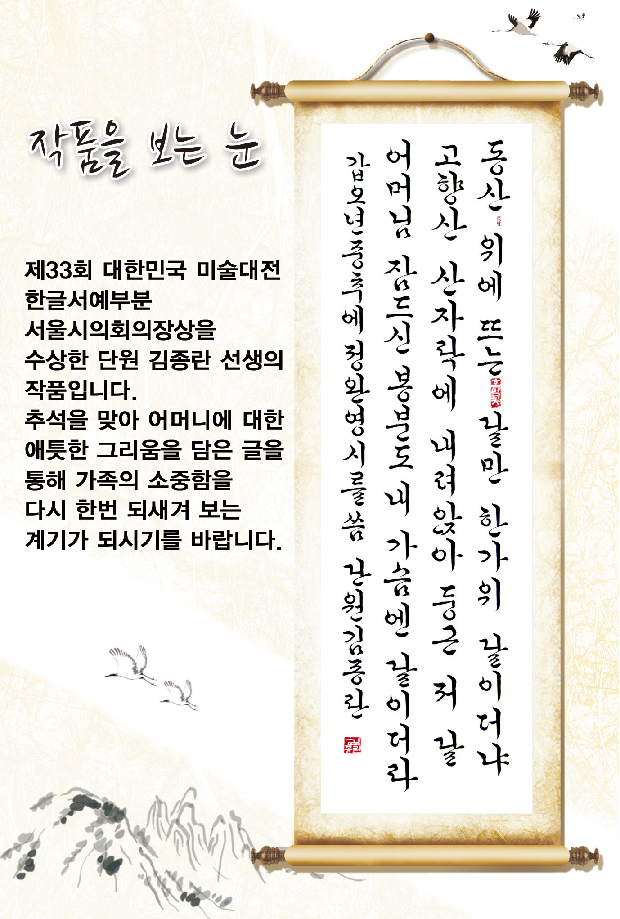 작품을 보는 눈
제33회 대한민국 미술대전
한글서예부분
서울시의회의장상을
수상한 단원 김종란 선생의
작품입니다.
추석을 맞아 어머니에 대한
애틋한 그리움을 담은 글을
통해 가족의 소중함을
다시 한번 되새겨 보는
계기가 되시기를 바랍니다.
동산 위에 뜨는 달만 한가위 달이더냐
고향산 산자락에 내려앉아 둥근 저 달
어머님 잠드신 봉분도 내 가슴엔 달이더라
갑오년중추에 정완영시를 씀 단원김종란